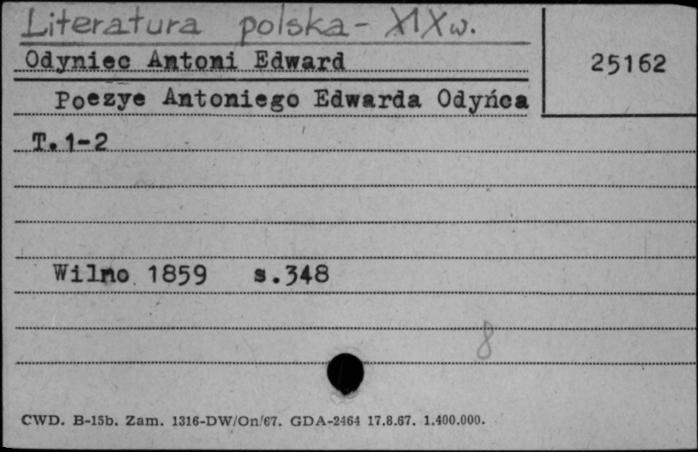 Literatura polska - XIX w.
Odyniec Antoni Edward
25162
Poezye Antoniego Edwarda Odyńca
T. 1-2
Wilno 1859 s.348
8
CWD. B-15b. Zam. 1316-DW/On/67. GDA-2464 17.8.67. 1.400.000.